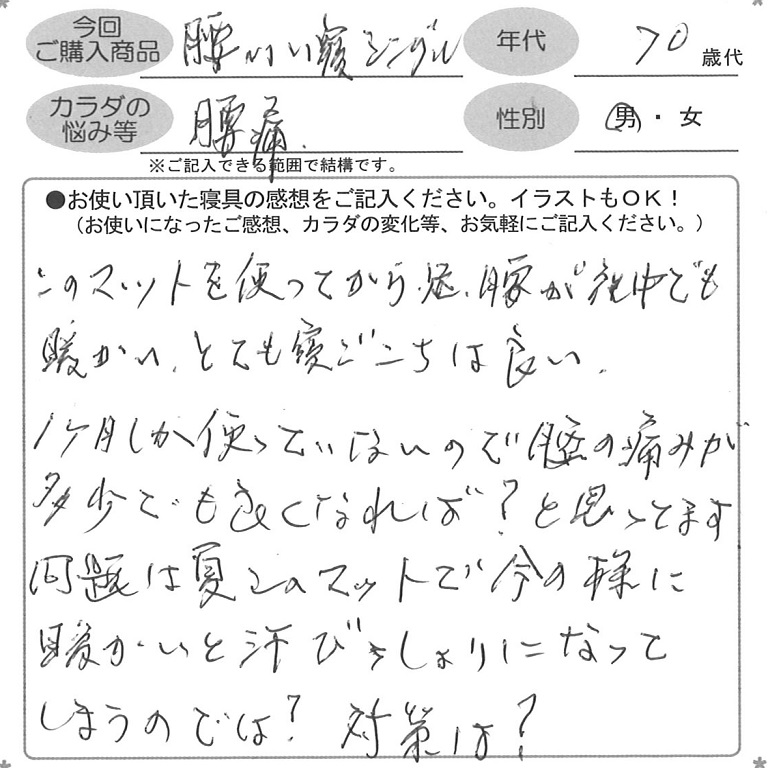 今回
ご購入商品
腰いい寝シングル
年代
70歳代
カラダの
悩み等
腰痛.
性別
男・女
※ご記入できる範囲で結構です。
●お使い頂いた寝具の感想をご記入ください。イラストもOK！
（お使いになったご感想、カラダの変化等、お気軽にご記入ください。）
このマットを使ってから足、腰が夜中でも
暖かい、とても寝ごこちは良い.
1ヶ月しか使っていないので腰の痛みが
多少でも良くなれば？と思ってます
問題は夏このマットで今の様に
暖かいと汗びっしょりになって
しまうのでは？ 対策は？